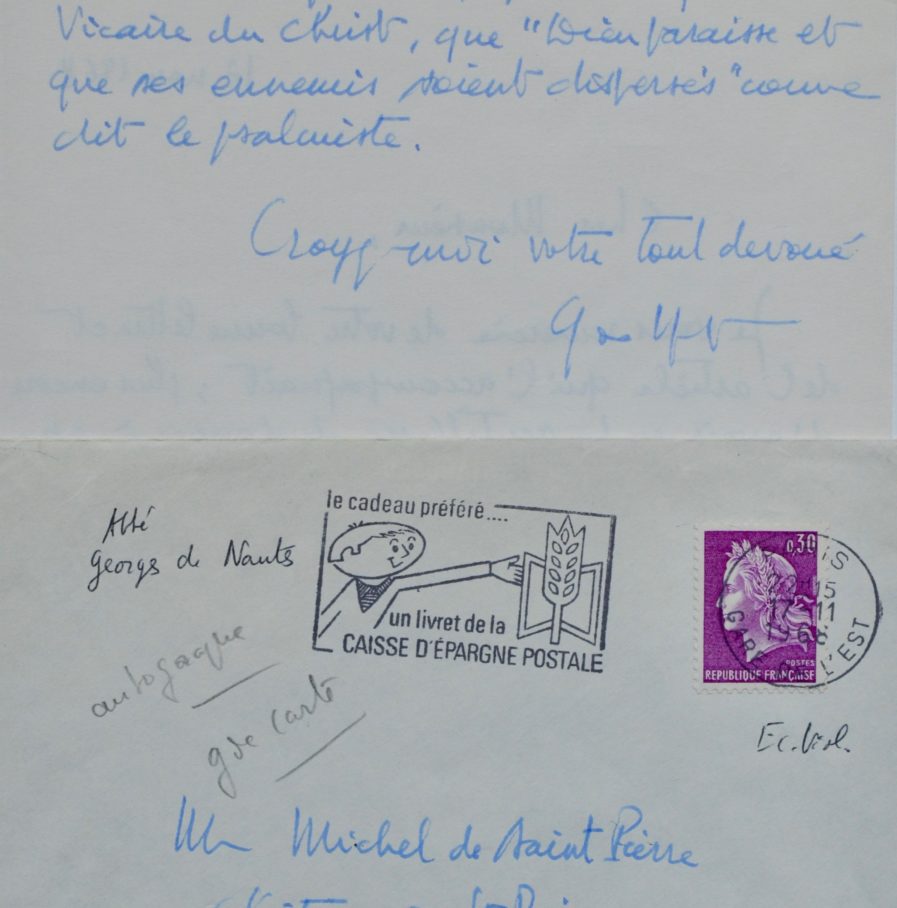 Vicaire du Christ, que "Dieu paraisse et
que ses ennemis soient dispersés" comme
dit le psalmiste.
Croyez-moi votre tout dévoué
Abbé
Georges de Nantes
le cadeau préféré....
un livret de la
CAISSE D'ÉPARGNE POSTALE
0,30
15
17-11
1968
GARE DE L'EST
POSTES
REPUBLIQUE FRANÇAISE
autographe
gde carte
Ec. Viol.
Mr Michel de Saint Pierre